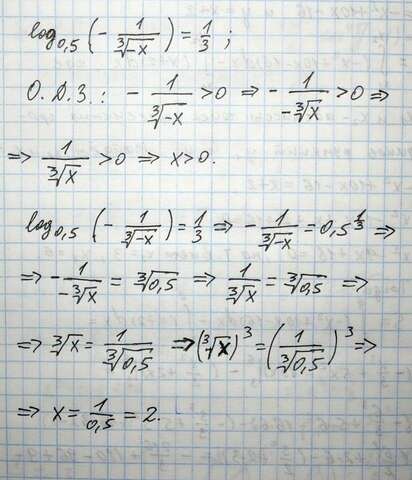 log₀,₅ (- 1/∛-x) = 1/3 ;
О. Д. З. : - 1/∛-x > 0 ⇒ - 1/-∛x > 0 ⇒
⇒ 1/∛x > 0 ⇒ x > 0.
log₀,₅ (- 1/∛-x) = 1/3 ⇒ - 1/∛-x = 0,5^1/3 ⇒
⇒ - 1/-∛x = ∛0,5 ⇒ 1/∛x = ∛0,5 ⇒
⇒ ∛x = 1/∛0,5 ⇒ (∛x)³ = (1/∛0,5)³ ⇒
⇒ x = 1/0,5 = 2.